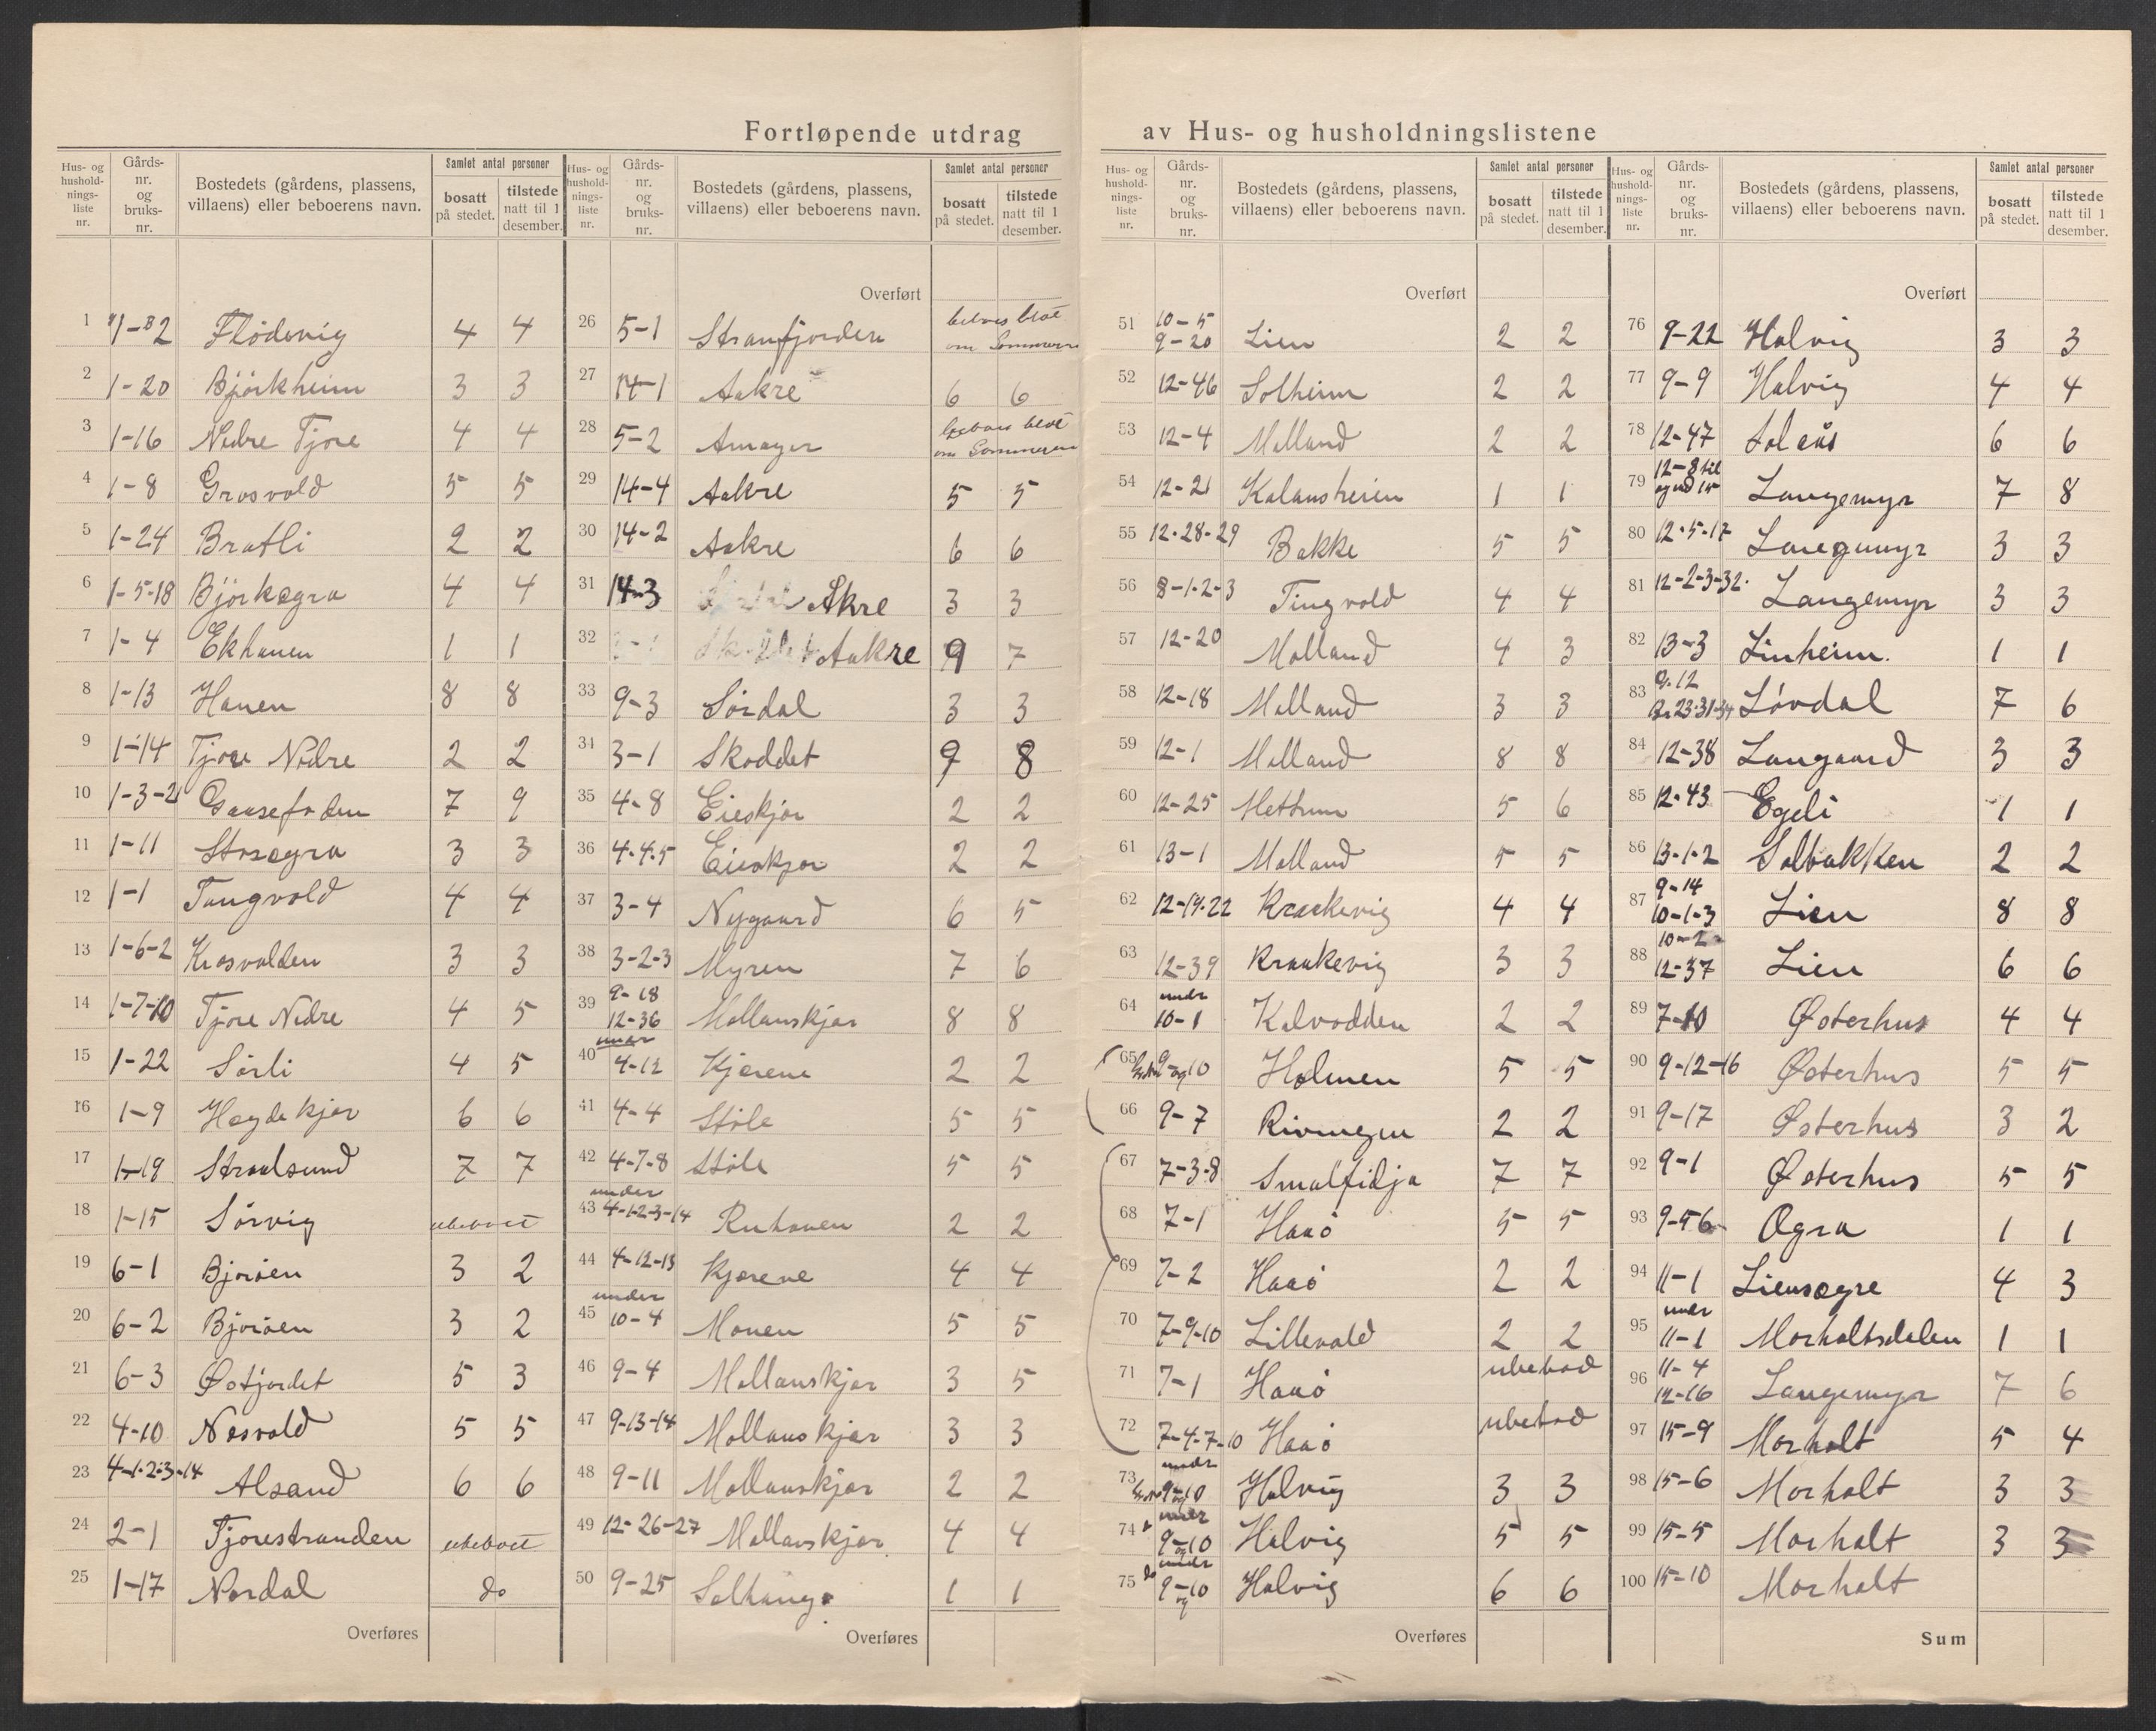 Fortløpende utdrag av Hus- og husholdningslistene
Hus- og hushold-nings-liste nr. Gårds-nr. og bruks-nr. Bostedets (gårdens, plassens, villaens) eller beboerens navn. Samlet antal personer bosatt på stedet. tilstede natt til 1 desember.
1 1-82 Flödevig 4 4
2 1-20 Björkheim 3 3
3 1-16 Nedre Tjore 4 4
4 1-8 Grosvold 5 5
5 1-24 Bratli 2 2
6 1-5-18 Björkøgra 4 4
7 1-4 Ekhauen 1 1
8 1-13 Hauen 8 8
9 1-14 Tjore Nedre 2 2
10 1-3-21 Gaasefoden 7 9
11 1-11 Storøgra 3 3
12 1-1 Tangvold 4 4
13 1-6-2 Krosvolden 3 3
14 1-7-10 Tjore Nedre 4 5
15 1-22 Sørli 4 5
16 1-9 Høgdekjær 6 6
17 1-19 Stralsund 7 7
18 1-15 Sörvig ubeboet
19 6-1 Bjorøen 3 2
20 6-2 Bjorøen 3 2
21 6-3 Østjordet 5 3
22 4-10 Nesvold 5 5
23 4-1-2-3-14 Alsand 6 6
24 2-1 Tjorestranden ubeboet
25 1-17 Nordal do
Overføres
Hus- og hushold-nings-liste nr. Gårds-nr. og bruks-nr. Bostedets (gårdens, plassens, villaens) eller beboerens navn. Samlet antal personer bosatt på stedet. tilstede natt til 1 desember.
Overført
26 5-1 Stranfjorden om Sommeren
27 14-1 Aakre 6 6
28 5-2 Amager om Sommeren
29 14-4 Aakre 5 5
30 14-2 Aakre 6 6
31 14-3 Akre 3 3
32 Aakre 9 7
33 9-3 Sördal 3 3
34 3-1 Skoddet 9 8
35 4-8 Eieskjær 2 2
36 4-4-5 Eieskjær 2 2
37 3-4 Nygaard 6 5
38 3-2-3 Myren 7 6
39 9-18 12-36 Mollanskjær 8 8
40 under 4-12 Kjærene 2 2
41 4-4 Støle 5 5
42 4-7-8 Støle 5 5
43 under 4-1-2-3-14 Ruhauen 2 2
44 4-12-13 Kjærene 4 4
45 under 10-4 Monen 5 5
46 9-4 Mollanskjær 3 5
47 9-13-14 Mollanskjær 3 3
48 9-11 Mollanskjær 2 2
49 12-26-27 Mollanskjær 4 4
50 9-25 Solhaug 1 1
Overføres
Hus- og hushold-nings-liste nr. Gårds-nr. og bruks-nr. Bostedets (gårdens, plassens, villaens) eller beboerens navn. Samlet antal personer bosatt på stedet. tilstede natt til 1 desember.
Overført
51 10-5 9-20 Lien 2 2
52 12-46 Solheim 2 2
53 12-4 Molland 2 2
54 12-21 Kalausheien 1 1
55 12-28-29 Bakke 5 5
56 8-1-2-3 Tingvold 4 4
57 12-20 Molland 4 3
58 12-18 Molland 3 3
59 12-1 Molland 8 8
60 12-25 5 6
61 13-1 Molland 5 5
62 12-19-22 Kraakevig 4 4
63 12-39 Kraakevig 3 3
64 under 10-1 Kalvodden 2 2
65 9-og 10 Holmen 5 5
66 9-7 Rivingen 2 2
67 7-3-8 Smalfidja 7 7
68 7-1 Haaö 5 5
69 7-2 Haaö 2 2
70 7-9-10 Lillevold 2 2
71 7-1 Haaö ubebod
72 7-4-7-10 Haaö ubebod
73 under 9-og 10 Halvig 3 3
74 under 9-og 10 Halvig 5 5
75 do under 9-og 10 Halvig 6 6
Overføres
Hus- og hushold-nings-liste nr. Gårds-nr. og bruks-nr. Bostedets (gårdens, plassens, villaens) eller beboerens navn. Samlet antal personer bosatt på stedet. tilstede natt til 1 desember.
Overført
76 9-22 Halvig 3 3
77 9-9 Halvig 4 4
78 12-47 Soleås 6 6
79 12-8 til Langemyr 7 8
80 12-5-17 Langemyr 3 3
81 12-2-3-32 Langemyr 3 3
82 13-3 Linheim. 1 1
83 9.12 Br 23-31-34 Lövdal 7 6
84 12-38 Langaard 3 3
85 12-43 Egeli 1 1
86 13-1-2 Solbakken 2 2
87 9-14 10-1-3 Lien 8 8
88 10-2 12-37 Lien 6 6
89 7-10 Østerhus 4 4
90 9-12-16 Østerhus 5 5
91 9-17 Østerhus 3 2
92 9-1 Østerhus 5 5
93 9-5 6 Øgra 1 1
94 11-1 Liensøgre 4 3
95 under 11-1 Morholtsdalen 1 1
96 11-4 12-16 Langemyr 7 6
97 15-9 Morholt 5 4
98 15-6 Morholt 3 3
99 15-5 Morholt 3 3
100 15-10 Morholt
Sum